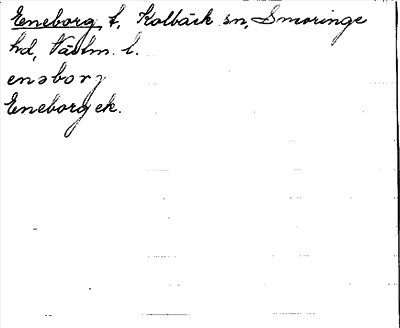 Eneborg, t, Kolbäck sn, Smoringe
hd, Västm. l.
enəborj
Eneborg ek.